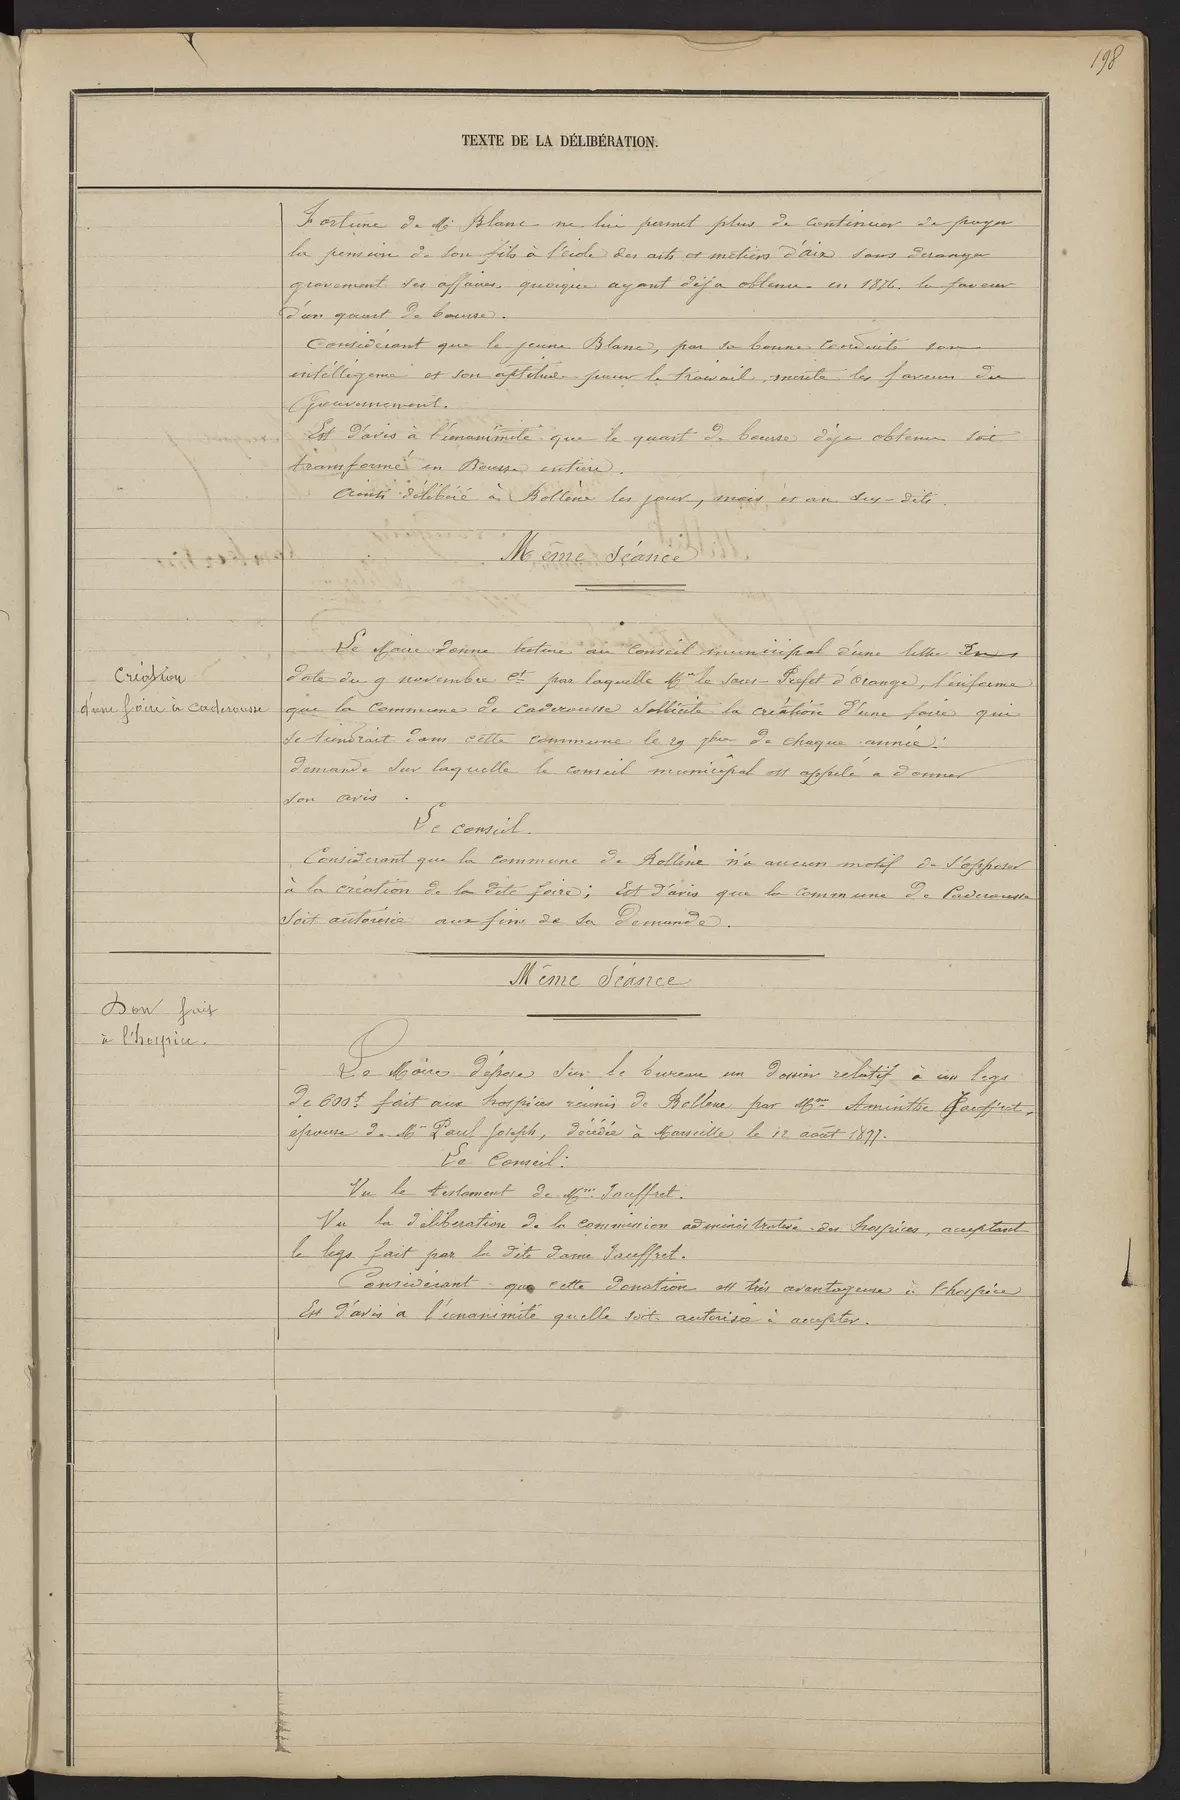 198
TEXTE DE LA DÉLIBÉRATION.
Fortune de Mr Blanc ne lui permet plus de continuer de payer
la pension de son fils à l'école des arts et métiers d'aix sans deranger
gravement ses affaires, quoique ayant déja obtenu en 1876. la faveur
d'un quart de bourse.
Considérant que le jeune Blanc, par sa bonne conduite son
intélligence et son aptitude pour le travail, merite les faveurs du
Gouvernement.
Est d'avis à l'unanimité que le quart de bourse déja obtenu soit
transformé en Bourse entière.
Ainsi délibéré à Bollène les jour, mois et an sus-dits.
Même séance
création
d'une foire à caderousse
Le Maire donne lecture au Conseil municipal d'une lettre En
date du 9 novembre ct par laquelle Mr le Sous-Préfet d'Orange, l'informe
que la commune de caderousse sollicite la création d'une foire qui
se tiendrait dans cette commune le 29 7bre de chaque année:
demande sur laquelle le conseil municipal est appelé a donner
son avis.
Le conseil.
Considerant que la commune de Bollène n'a aucun motif de s'opposer
à la création de la dite foire; Est d'avis que la commune de Caderousse
soit autorisée aux fins de sa Demande.
Même Séance
Don fait
à l'hospice.
Le Maire dépose sur le bureau un dossier relatif à un legs
de 600f. fait aux hospices réunis de Bollène par Mme Aminthe Jauffret,
épouse de Mr Paul Joseph, décédée à Marseille le 12 août 1877.
Le Conseil:
Vu le testament de Mme Jauffret.
Vu la délibération de la commission administrative des hospices, acceptant
le legs fait par la dite dame Jauffret.
Considérant que cette donation est très avantageuse à l'hospice
Est d'avis à l'unanimité quelle soit autorisée à accepter.